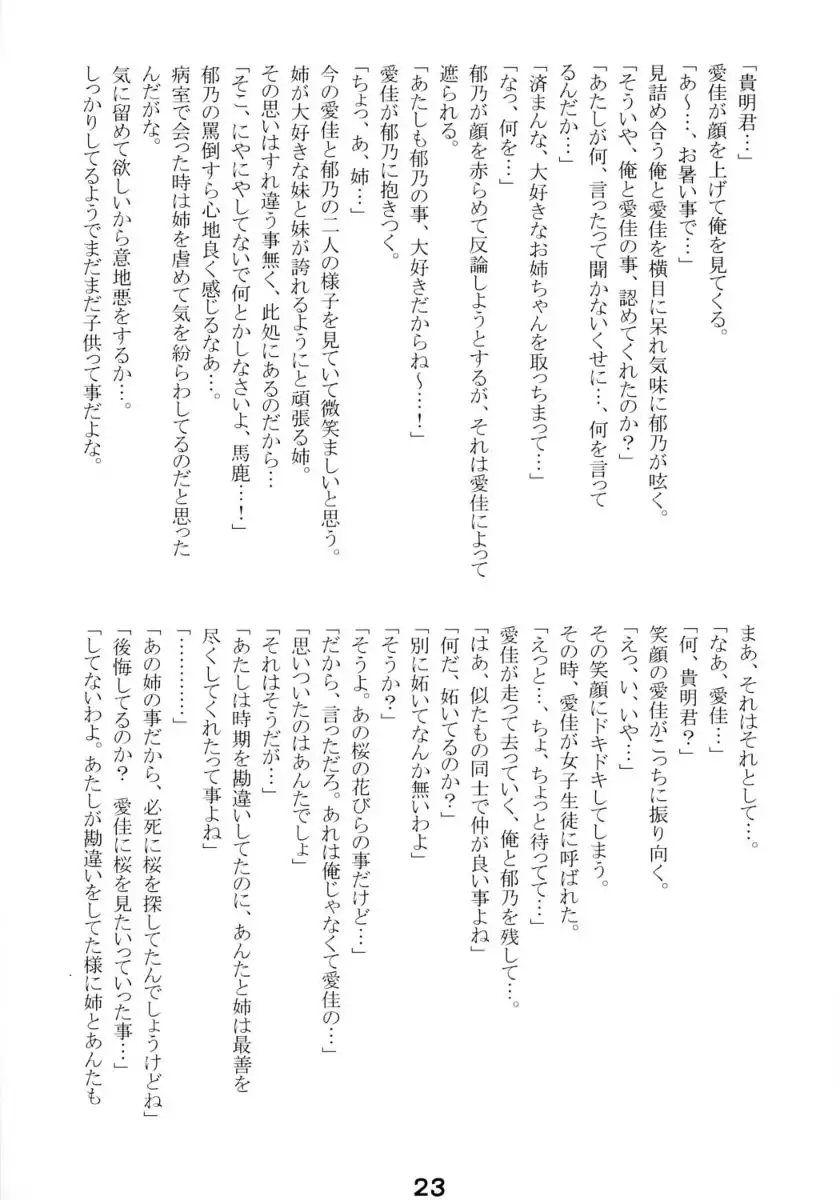 「貴明君…」
愛佳が顔を上げて俺を見てくる。
「あ〜…、お暑い事で…」
見詰め合う俺と愛佳を横目に呆れ気味に郁乃が呟く。
「そういや、俺と愛佳の事、認めてくれたのか？」
「あたしが何、言ったって聞かないくせに…、何を言って
るんだか…」
「済まんな、大好きなお姉ちゃんを取っちまって…」
「なっ、何を…」
郁乃が顔を赤らめて反論しようとするが、それは愛佳によって
遮られる。
「あたしも郁乃の事、大好きだからね〜…！」
愛佳が郁乃に抱きつく。
「ちょっ、あ、姉…」
今の愛佳と郁乃の二人の様子を見ていて微笑ましいと思う。
姉が大好きな妹と妹が誇れるようにと頑張る姉。
その思いはすれ違う事無く、此処にあるのだから…
「そこ、にやにやしてないで何とかしなさいよ、馬鹿…！」
郁乃の罵倒すら心地良く感じるなあ…。
病室で会った時は姉を虐めて気を紛らわしてるのだと思った
んだがな。
気に留めて欲しいから意地悪をするか…。
しっかりしてるようでまだまだ子供って事だよな。
まあ、それはそれとして…。
「なあ、愛佳…」
「何、貴明君？」
笑顔の愛佳がこっちに振り向く。
「えっ、い、いや…」
その笑顔にドキドキしてしまう。
その時、愛佳が女子生徒に呼ばれた。
「えっと…、ちょ、ちょっと待ってて…」
愛佳が走って去っていく、俺と郁乃を残して…。
「はあ、似たもの同士で仲が良い事よね」
「何だ、妬いてるのか？」
「別に妬いてなんか無いわよ」
「そうか？」
「そうよ。あの桜の花びらの事だけど…」
「だから、言っただろ。あれは俺じゃなくて愛佳の…」
「思いついたのはあんたでしょ」
「それはそうだが…」
「あたしは時期を勘違いしてたのに、あんたと姉は最善を
尽くしてくれたって事よね」
「…………」
「あの姉の事だから、必死に桜を探してたんでしょうけどね」
「後悔してるのか？　愛佳に桜を見たいっていった事…」
「してないわよ。あたしが勘違いをしてた様に姉とあんたも
23